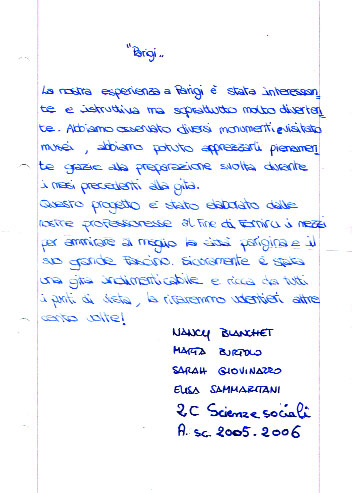 "Parigi"
La nostra esperienza a Parigi è stata interessan-
te e istruttiva ma soprattutto molto diverten-
te. Abbiamo osservato diversi monumenti e visitato
musei, abbiamo potuto apprezzarli pienamen-
te grazie alla preparazione svolta durante
i mesi precedenti alla gita.
Questo progetto è stato elaborato dalle
nostre professoresse al fine di fornirci i mezzi
per ammirare al meglio la città parigina e il
suo grande fascino. Sicuramente è stata
una gita indimenticabile e ricca da tutti
i punti di vista, la rifaremmo volentieri altre
cento volte!
NANCY BLANCHET
MARTA BURTOLO
SARAH GIOVINAZZO
ELISA SAMMARITANI
2C Scienze sociali
A. sc. 2005-2006